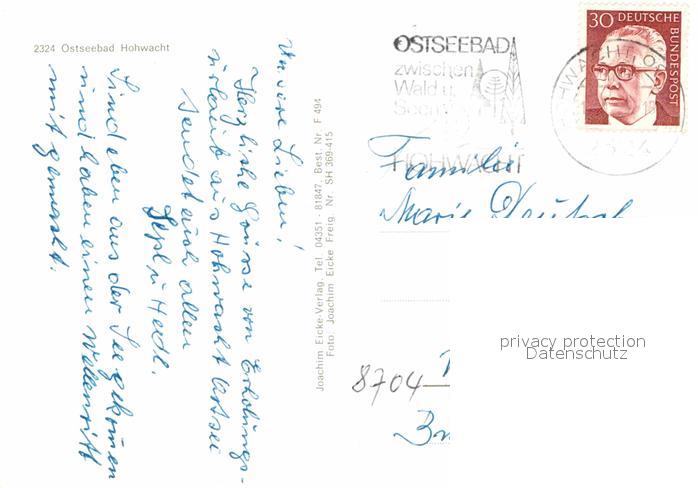 2324 Ostseebad Hohwacht
Unsere Lieben!
Herzliche Grüsse von Erholungs-
urlaub aus Hohwacht Ostsee
sendet euch allen
Sepl u Hedl.
Sind eben aus der See gekommen
und haben einen Wellenritt
mit gemacht.
Joachim Eicke-Verlag, Tel. 04351 - 81847, Best. Nr. F 494
Foto: Joachim Eicke Freig. Nr. SH 369-415
OSTSEEBAD
zwischen
Wald u.
See
HOHWACHT
30 DEUTSCHE
BUNDESPOST
Familie
Marie Deutsch
8704
privacy protection
Datenschutz